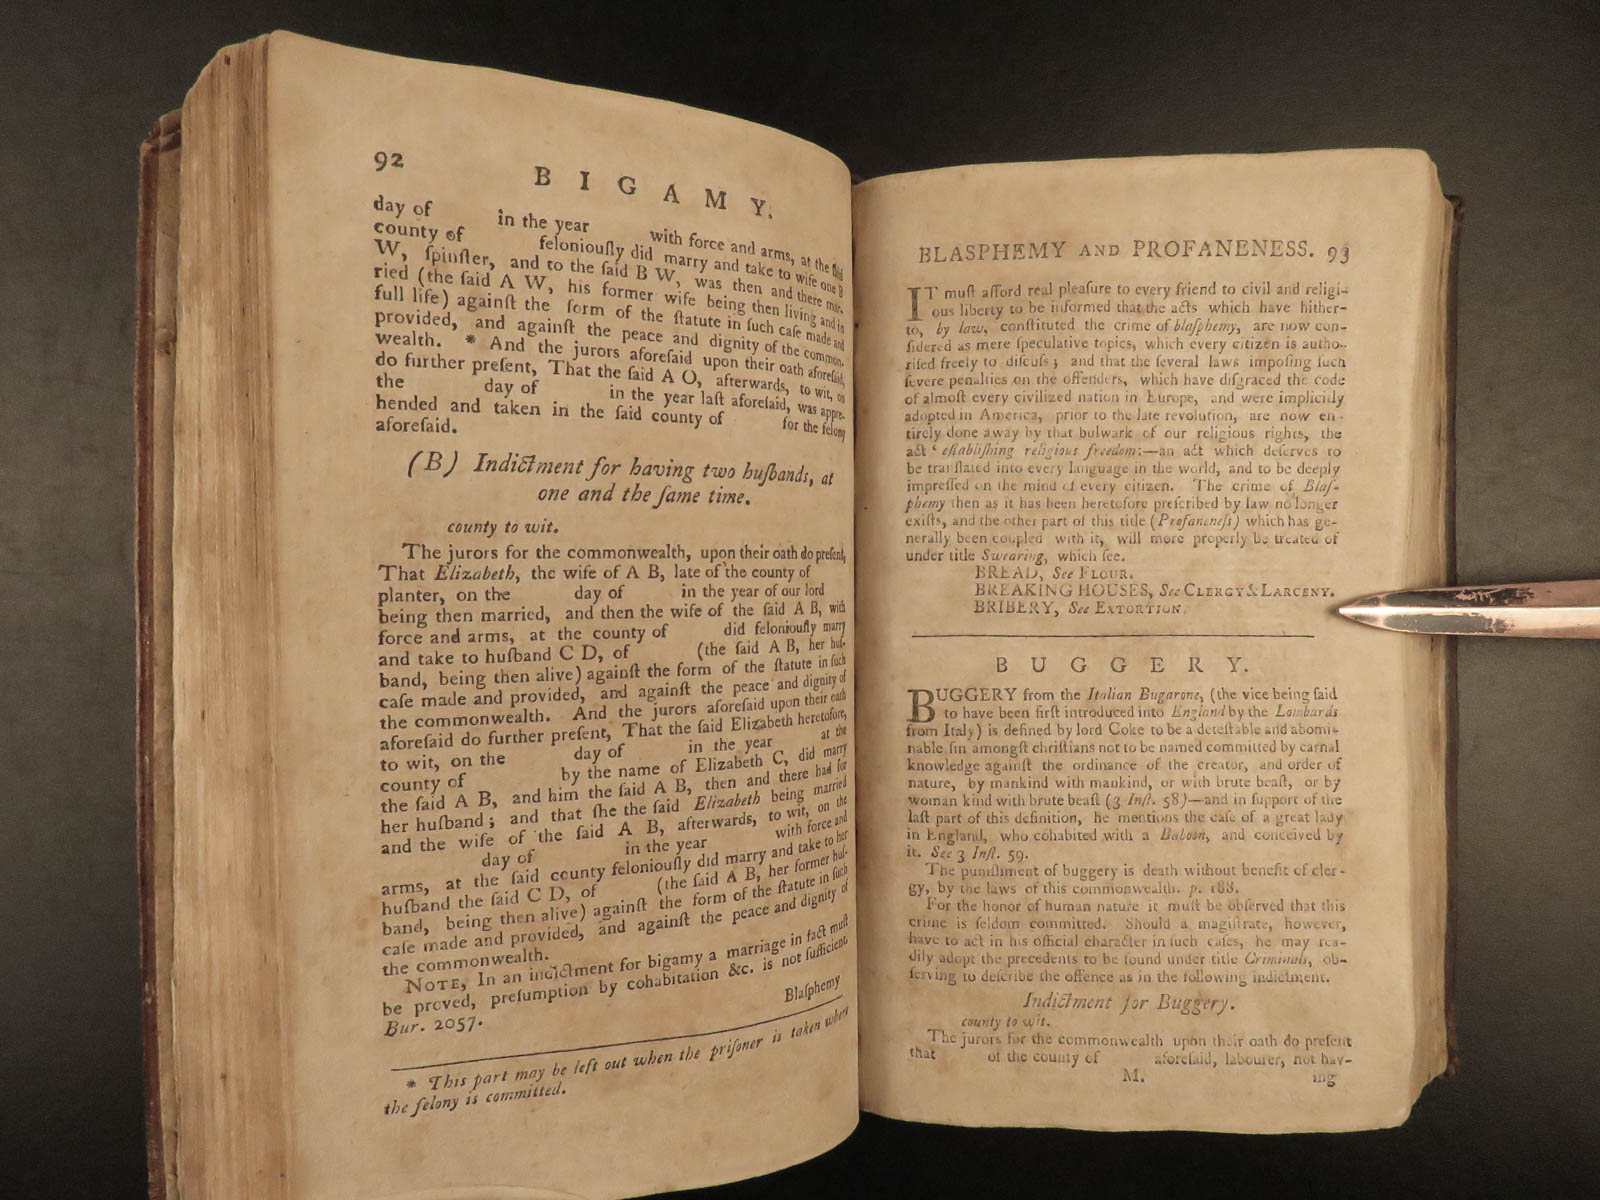 92
BIGAMY.
day of in the year with force and arms, at the said
county of feloniouſly did marry and take to wife one B
W, ſpinſter, and to the ſaid B W, was then and there mar-
ried (the ſaid A W, his former wife being then living and in
full life) againſt the form of the ſtatute in ſuch caſe made and
provided, and againſt the peace and dignity of the common-
wealth. * And the jurors aforeſaid upon their oath aforeſaid,
do further preſent, That the ſaid A O, afterwards, to wit, on
the day of in the year laſt aforeſaid, was appre-
hended and taken in the ſaid county of for the felony
aforeſaid.
(B) Indictment for having two huſbands, at
one and the ſame time.
county to wit.
The jurors for the commonwealth, upon their oath do preſent,
That Elizabeth, the wife of A B, late of the county of
planter, on the day of in the year of our lord
being then married, and then the wife of the ſaid A B, with
force and arms, at the county of did feloniouſly marry
and take to huſband C D, of (the ſaid A B, her huſ-
band, being then alive) againſt the form of the ſtatute in ſuch
caſe made and provided, and againſt the peace and dignity of
the commonwealth. And the jurors aforeſaid upon their oath
aforeſaid do further preſent, That the ſaid Elizabeth heretofore,
to wit, on the day of in the year at the
county of by the name of Elizabeth C, did marry
the ſaid A B, and him the ſaid A B, then and there had for
her huſband; and that ſhe the ſaid Elizabeth being married
and the wife of the ſaid A B, afterwards, to wit, on the
day of in the year with force and
arms, at the ſaid county feloniouſly did marry and take to her
huſband the ſaid C D, of (the ſaid A B, her former huſ-
band, being then alive) againſt the form of the ſtatute in ſuch
caſe made and provided, and againſt the peace and dignity of
the commonwealth.
NOTE, In an indictment for bigamy a marriage in fact muſt
be proved, preſumption by cohabitation &c. is not ſufficient.
Bur. 2057.
Blaſphemy
* This part may be left out when the priſoner is taken where
the felony is committed.
BLASPHEMY AND PROFANENESS. 93
IT muſt afford real pleaſure to every friend to civil and religi-
ous liberty to be informed that the acts which have hither-
to, by law, conſtituted the crime of blaſphemy, are now con-
ſidered as mere ſpeculative topics, which every citizen is autho-
riſed freely to diſcuſs; and that the ſeveral laws impoſing ſuch
ſevere penalties on the offenders, which have diſgraced the code
of almoſt every civilized nation in Europe, and were implicidy
adopted in America, prior to the late revolution, are now en-
tirely done away by that bulwark of our religious rights, the
act ' eſtabliſhing religious freedom:—an act which deſerves to
be tranſlated into every language in the world, and to be deeply
impreſſed on the mind of every citizen. The crime of Blaſ-
phemy then as it has been heretofore preſcribed by law no longer
exiſts, and the other part of this title (Profaneneſs) which has ge-
nerally been coupled with it, will more properly be treated of
under title Swearing, which ſee.
BREAD, See FLOUR.
BREAKING HOUSES, See CLERGY & LARCENY.
BRIBERY, See EXTORTION.
BUGGERY.
BUGGERY from the Italian Bugarone, (the vice being ſaid
to have been firſt introduced into England by the Lombards
from Italy) is defined by lord Coke to be a deteſtable and abomi-
nable ſin amongſt chriſtians not to be named committed by carnal
knowledge againſt the ordinance of the creator, and order of
nature, by mankind with mankind, or with brute beaſt, or by
woman kind with brute beaſt (3 Inſt. 58)—and in ſupport of the
laſt part of this definition, he mentions the caſe of a great lady
in England, who cohabited with a Baboon, and conceived by
it. See 3 Inſt. 59.
The puniſhment of buggery is death without benefit of cler-
gy, by the laws of this commonwealth. p. 188.
For the honor of human nature it muſt be obſerved that this
crime is ſeldom committed. Should a magiſtrate, however,
have to act in his official character in ſuch caſes, he may rea-
dily adopt the precedents to be found under title Criminals, ob-
ſerving to deſcribe the offence as in the following indictment.
Indictment for Buggery.
county to wit.
The jurors for the commonwealth upon their oath do preſent
that of the county of aforeſaid, labourer, not hav-
M.
ing